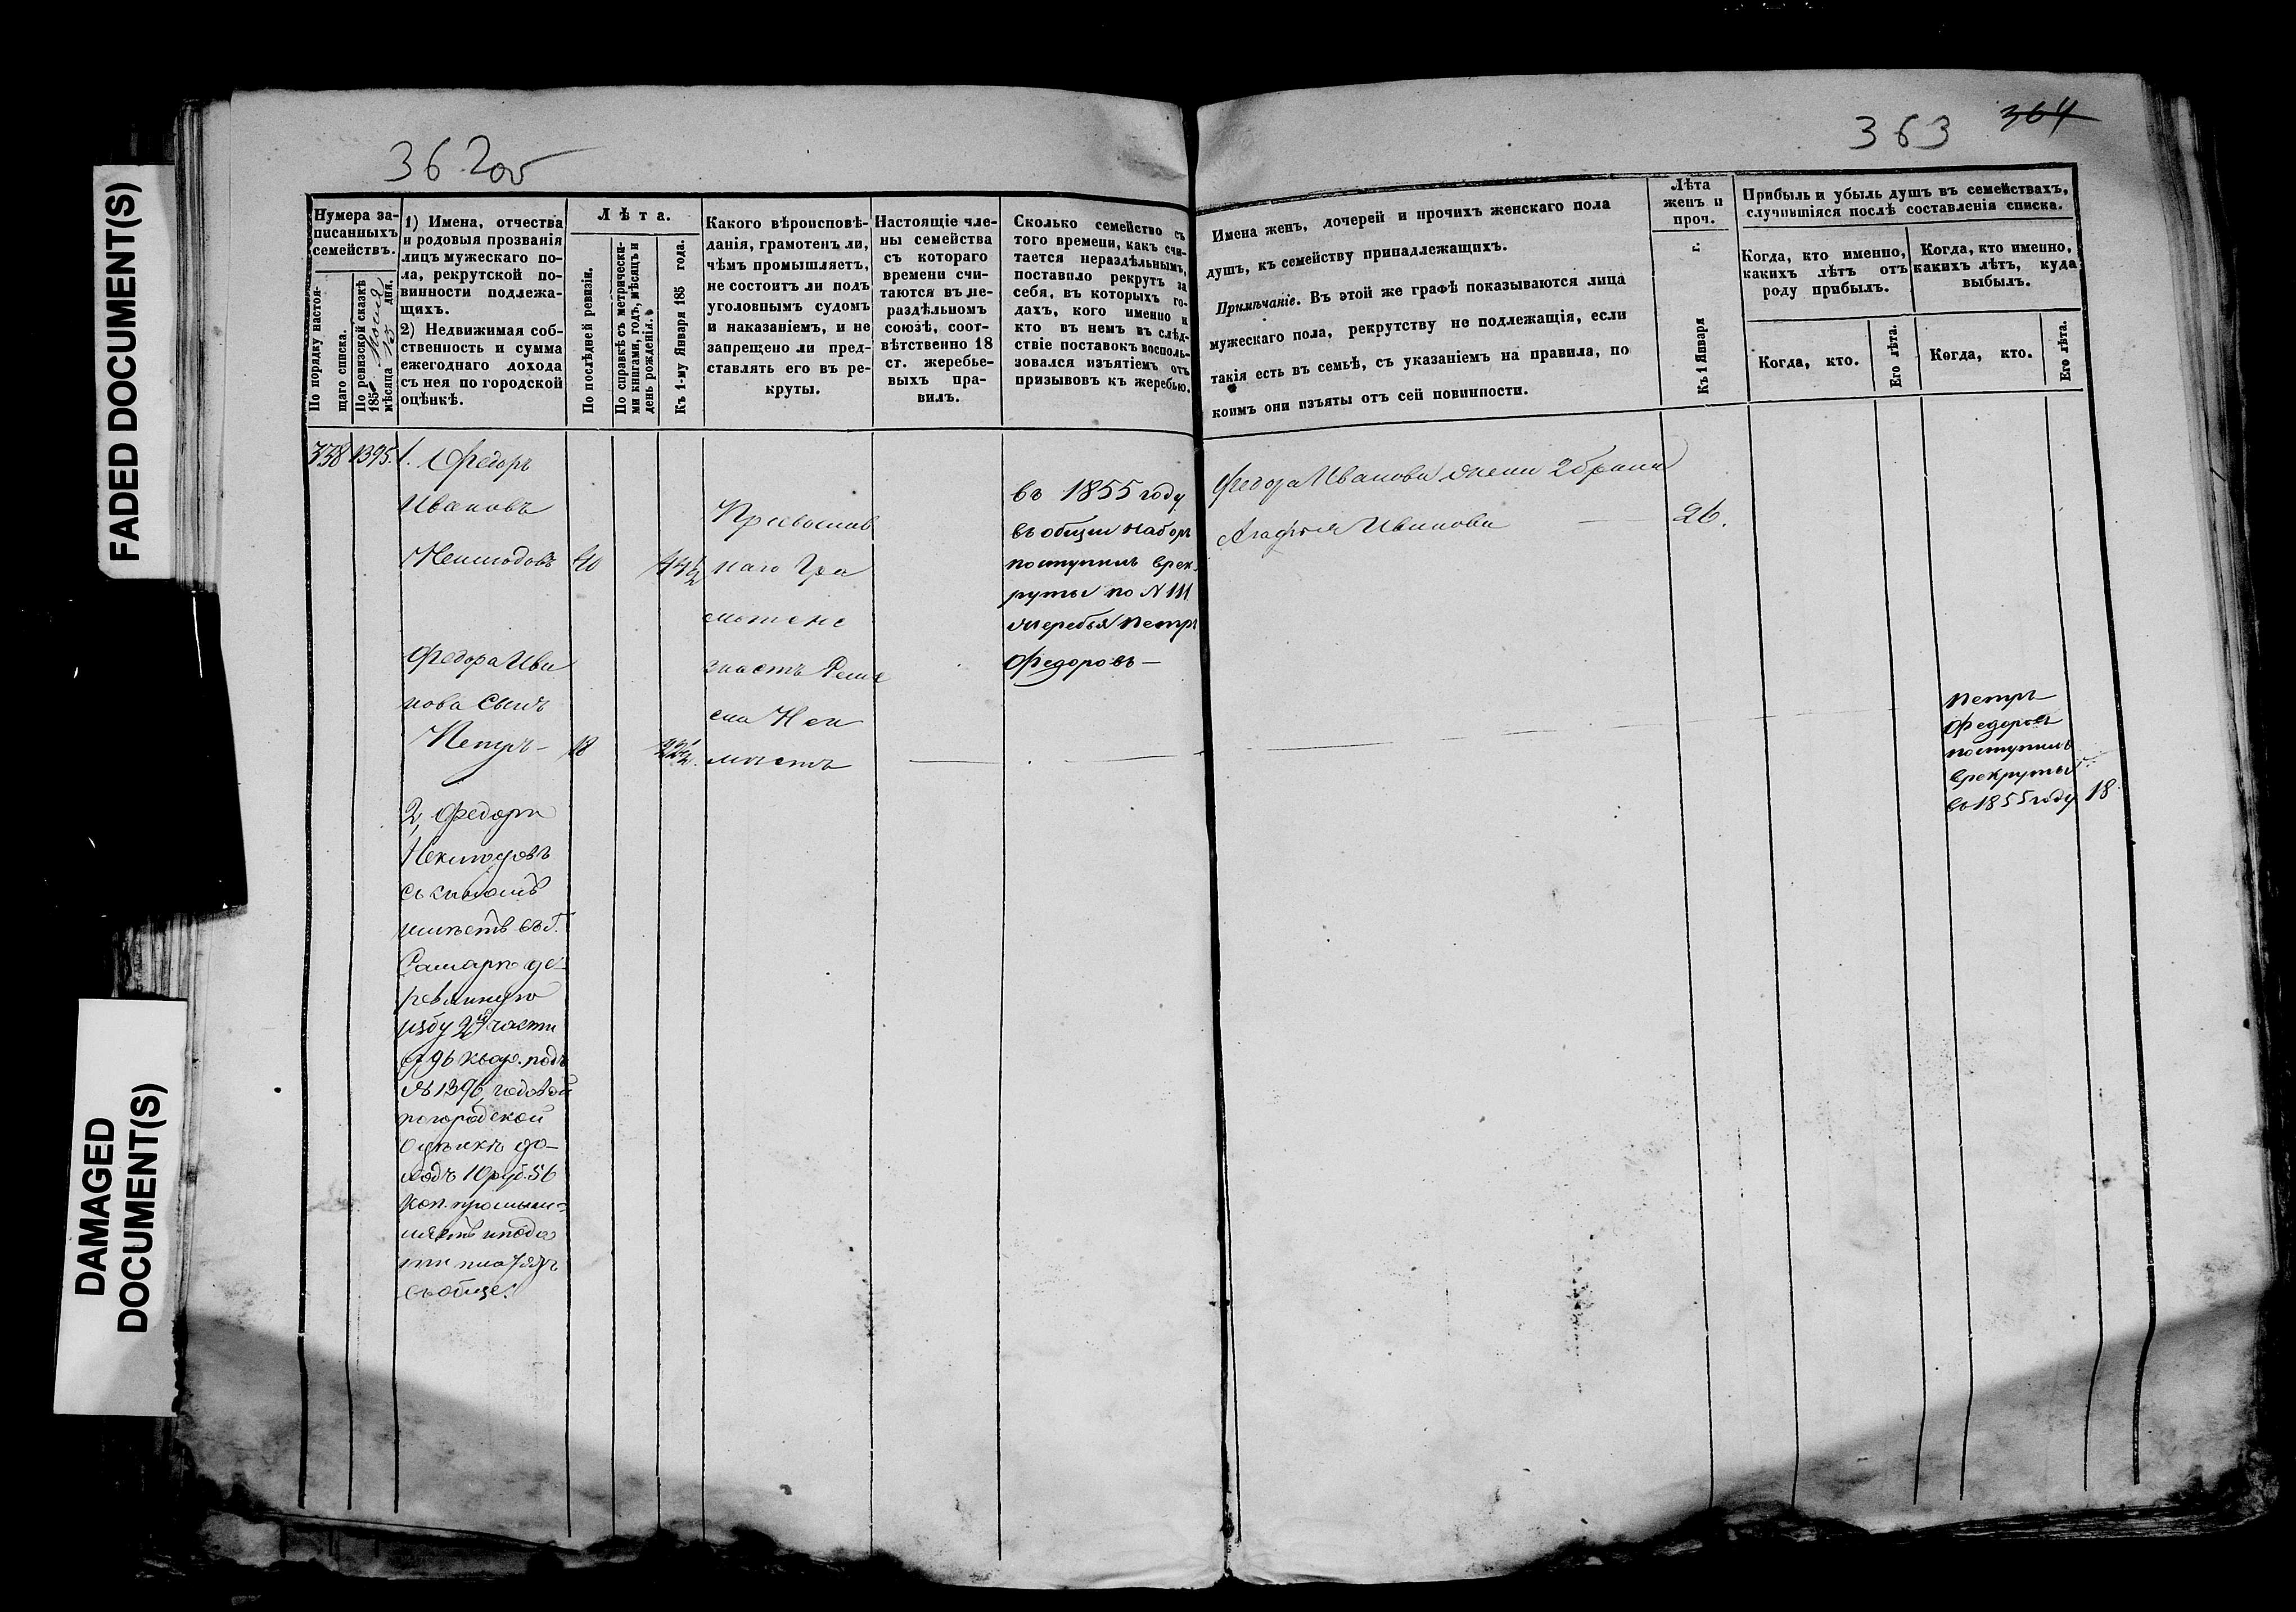 FADED DOCUMENT(S)
DAMAGED
DOCUMENT(S)
362 об
Нумера за-
писанныхъ
семействъ.
По порядку настоя-
щаго списка.
По ревизской сказкѣ
185 мѣсяца дня.
1) Имена, отчества
и родовыя прозванія
лицъ мужескаго по-
ла, рекрутской по-
винности подлежа-
щихъ.
2) Недвижимая соб-
ственность и сумма
ежегоднаго дохода
съ нея по городской
оцѣнкѣ.
Лѣта.
По послѣдней ревизіи.
По справкѣ съ метрически-
ми книгами, годъ, мѣсяцъ и
день рожденія.
Къ 1-му Января 185 года.
Какого вѣроисповѣ-
данія, грамотенъ ли,
чѣмъ промышляетъ,
не состоитъ ли подъ
уголовнымъ судомъ
и наказаніемъ, и не
запрещено ли пред-
ставлять его въ ре-
круты.
Настоящіе чле-
ны семейства
съ котораго
времени счи-
таются въ не-
раздѣльномъ
союзѣ, соот-
вѣтственно 18
ст. жеребье-
выхъ пра-
вилъ.
Сколько семейство съ
того времени, какъ счи-
тается нераздѣльнымъ,
поставило рекрутъ за
себя, въ которыхъ го-
дахъ, кого именно и
кто въ немъ въ слѣд-
ствіе поставокъ восполь-
зовался изъятіемъ отъ
призывовъ къ жеребью.
338
1395.
1. Федоръ
Ивановъ
40
Федора Ива
нова сынъ
Петръ
18
2, Федоръ
съ сыномъ
имѣетъ въ г.
Самарѣ де-
ревянную
избу 2й части
въ 96 кварт. подъ
№ 1396, годовой
по городской
оцѣнкѣ до-
ходъ 10 руб. 56
коп. промыш-
ляетъ и пода
ти платятъ
съобще.
Православ
наго Гра
моте не
знаетъ Реме
сла Неи
мѣетъ
въ 1855 году
въ общiй наборъ
поступилъ врек-
руты по N 111
жеребья Петръ
Федоровъ —
363
364
Имена женъ, дочерей и прочихъ женскаго пола
душъ, къ семейству принадлежащихъ.
Примѣчаніе. Въ этой же графѣ показываются лица
мужескаго пола, рекрутству не подлежащія, если
такія есть въ семьѣ, съ указаніемъ на правила, по
коимъ они изъяты отъ сей повинности.
Лѣта
женъ и
проч.
Къ 1 Января г.
Прибыль и убыль душъ въ семействахъ,
случившіяся послѣ составленія списка.
Когда, кто именно,
какихъ лѣтъ отъ
роду прибылъ.
Когда, кто именно,
какихъ лѣтъ, куда
выбылъ.
Когда, кто.
Его лѣта.
Когда, кто.
Его лѣта.
Федора Иванова жена 2 брака
Агафья Иванова
26.
Петръ
Федоровъ
поступилъ
врекруты
въ 1855 году
18